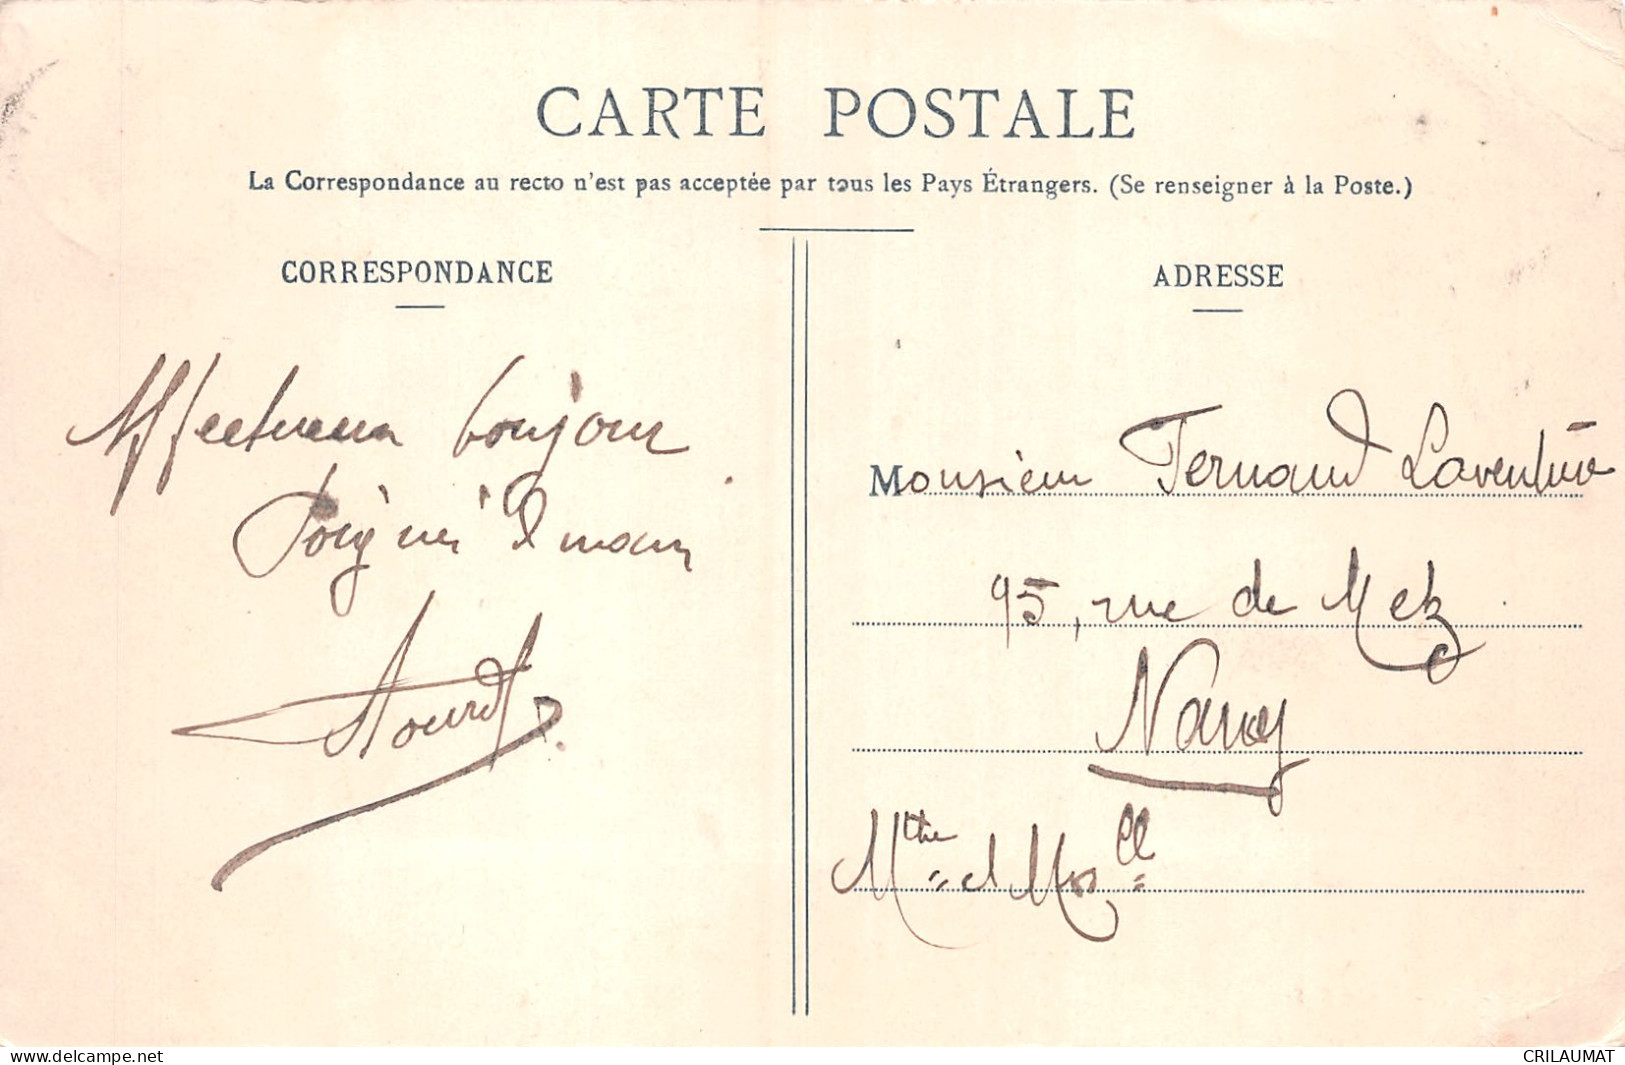 CARTE POSTALE
La Correspondance au recto n'est pas acceptée par tous les Pays Étrangers. (Se renseigner à la Poste.)
CORRESPONDANCE
Affectueux bonjour
Poignée d main
ADRESSE
Monsieur Fernand Laventure
95, rue de Metz
Nancy
Mthe et Mosll
www.delcampe.net
CRILAUMAT